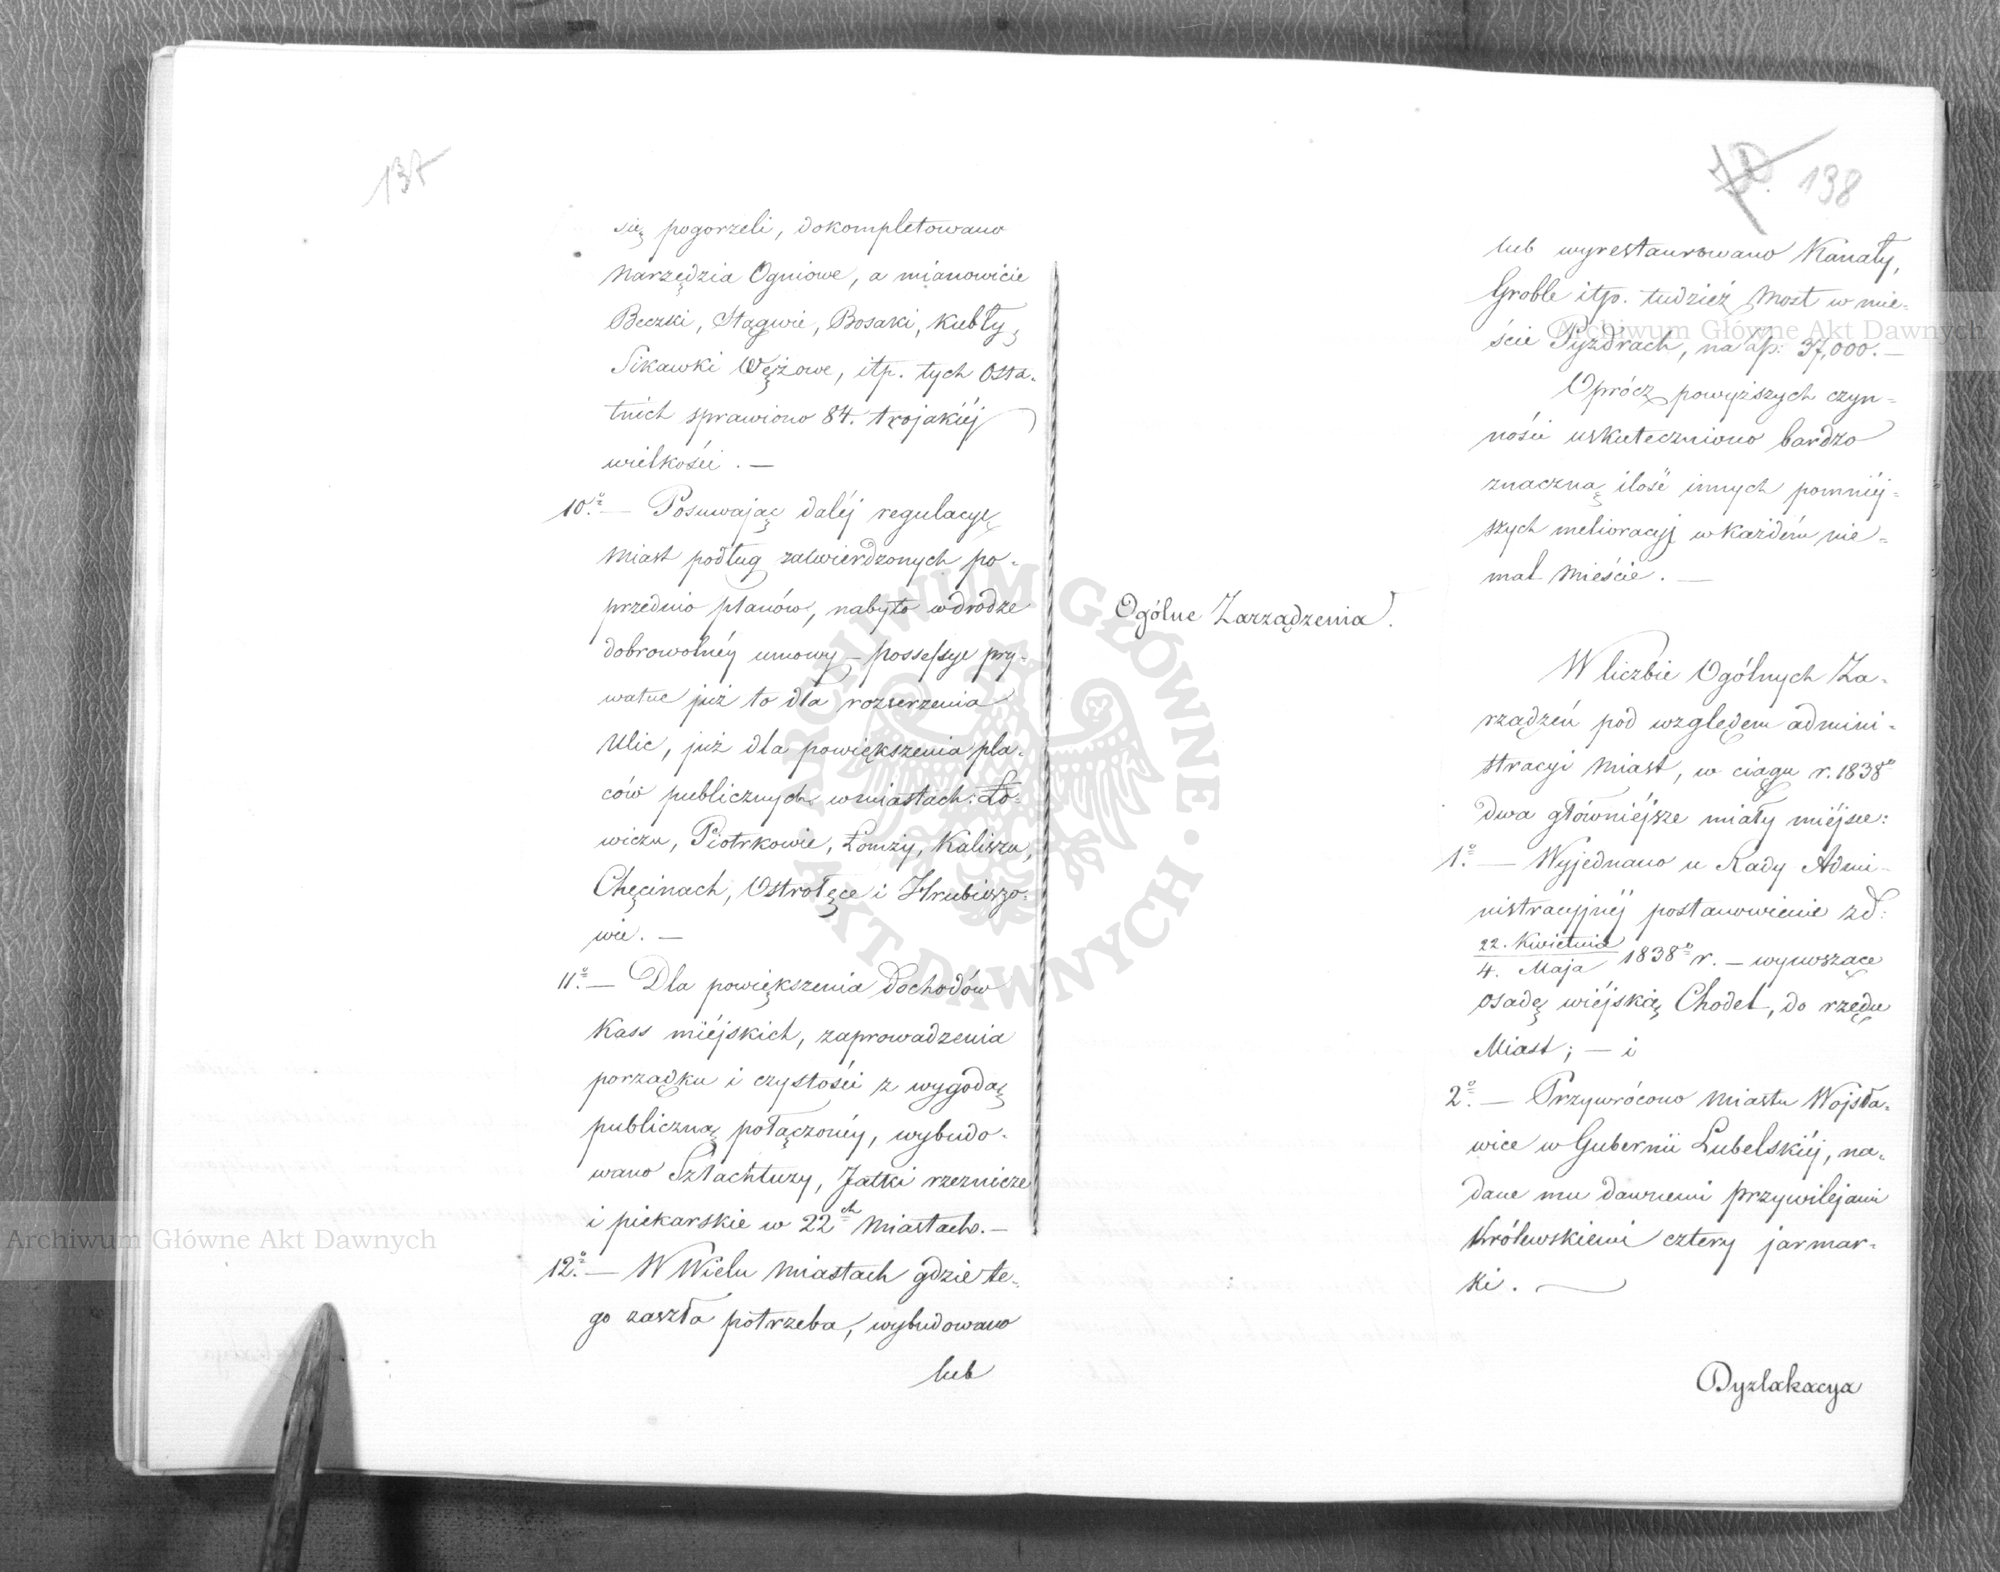 137
się pogorzeli, dokompletowano
Narzędzia Ogniowe, a mianowicie
Beczki, Stągwie, Bosaki, Kubły,
Sikawki Wężowe, itp. tych Osta-
tnich sprawiono 84. trojakiéj
wielkości. —
10.º — Posuwając daléj regulacyę
Miast podług zatwierdzonych po-
przednio planów, nabyto w drodze
dobrowolnéy umowy — possessye pry-
watne już to dla rozserzenia
Ulic, już dla powiększenia pla-
ców publicznych w miastach: Ło-
wiczu, Piotrkowie, Łomży, Kaliszu,
Chęcinach, Ostrołęce i Hrubieszo-
wie. —
11.º — Dla powiększenia Dochodów
Kass miéjskich, zaprowadzenia
porządku i czystości z wygodą
publiczną połączonéy, wybudo-
wano Szlachtuzy, Jatki rzeznicze
i piekarskie w 22ch Miastach. —
12.º — W Wielu Miastach gdzie te-
go zaszła potrzeba, wybudowano
lub
138
lub wyrestaurowano Kanały,
Groble itp. tudzież Most w mie-
ście Pyzdrach, na złp: 37,000. —
Oprócz powyższych czyn-
ności uskuteczniono bardzo
znaczną ilość innych pomniéj-
szych melioracyj w każdém nie-
mal Mieście. —
Ogólne Zarządzenia.
W liczbie Ogólnych Za-
rządzeń pod względem admini-
stracyi Miast, w ciągu r. 1838º
dwa główniéjsze miały miéjsce:
1.º — Wyjednano u Rady Admi-
nistracyjnéj postanowienie z d:
22. Kwietnia
4. Maja 1838º r. — wynoszące
osadę wiéjską Chodel, do rzędu
Miast; — i
2.º — Przywrócono Miastu Wojsła-
wice w Gubernii Lubelskiéj, na-
dane mu dawnemi przywilejami
Królewskiemi cztery jarmar-
ki. —
Dyzlokacya
Archiwum Główne Akt Dawnych
Archiwum Główne Akt Dawnych
ARCHIWUM GŁÓWNE · AKT DAWNYCH ·